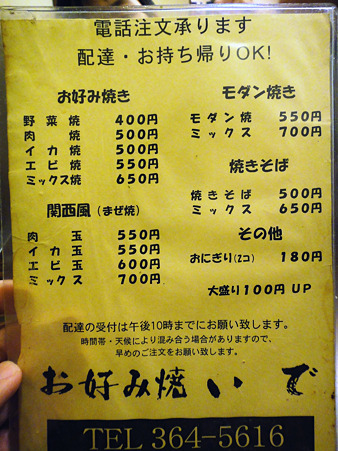 電話注文承ります
配達・お持ち帰りOK!
お好み焼き
野菜焼 400円
肉焼 500円
イカ焼 500円
エビ焼 550円
ミックス焼 650円
関西風(まぜ焼)
肉玉 550円
イカ玉 550円
エビ玉 600円
ミックス 700円
モダン焼き
モダン焼 550円
ミックス 700円
焼きそば
焼きそば 500円
ミックス 650円
その他
おにぎり(2コ) 180円
大盛り100円 UP
配達の受付は午後10時までにお願い致します。
時間帯・天候により混み合う場合がありますので、
早めのご注文をお願い致します。
お好み焼いで
TEL 364-5616